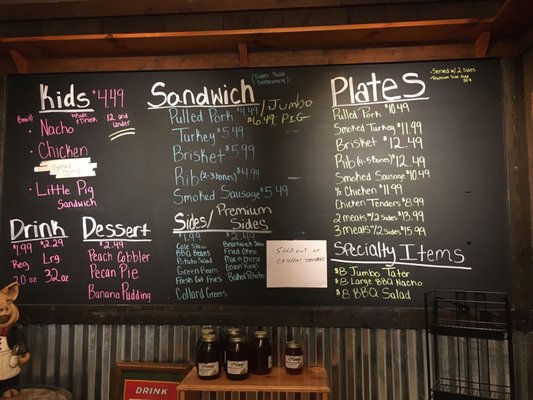 Kids $4.99
12 and under
Nacho
Chicken
Little Pig
Sandwich
Drink
$1.99 $2.29
Reg Lrg
20oz 32oz
Dessert
$2.49
Peach Cobbler
Pecan Pie
Banana Pudding
Sandwich
(Sides Sold Separately)
Pulled Pork $4.99 / Jumbo
$6.49 PLG
Turkey $5.49
Brisket $5.99
Rib (2-3 bones) $4.99
Smoked Sausage $5.49
Sides/Premium Sides
$1.99 $2.49
Cole Slaw
BBQ Beans
Potato Salad
Green Bean
Fresh Cut Fries
Collard Greens
Brunswick Stew
Fried Okra
Mac-n-Cheese
Onion Rings
Baked Potato
Sold out of
Chicken Tenders
Plates
Served w/ 2 Sides
Pulled Pork $10.49
Smoked Turkey $11.99
Brisket $12.49
Rib (4-5 Bones) $12.49
Smoked Sausage $10.49
½ Chicken $11.99
Chicken Tenders $8.99
2 meats w/2 sides $13.99
3 meats w/2 sides $15.49
Specialty Items
$8 Jumbo Tater
$8 Large BBQ Nacho
$8 BBQ Salad
DRINK